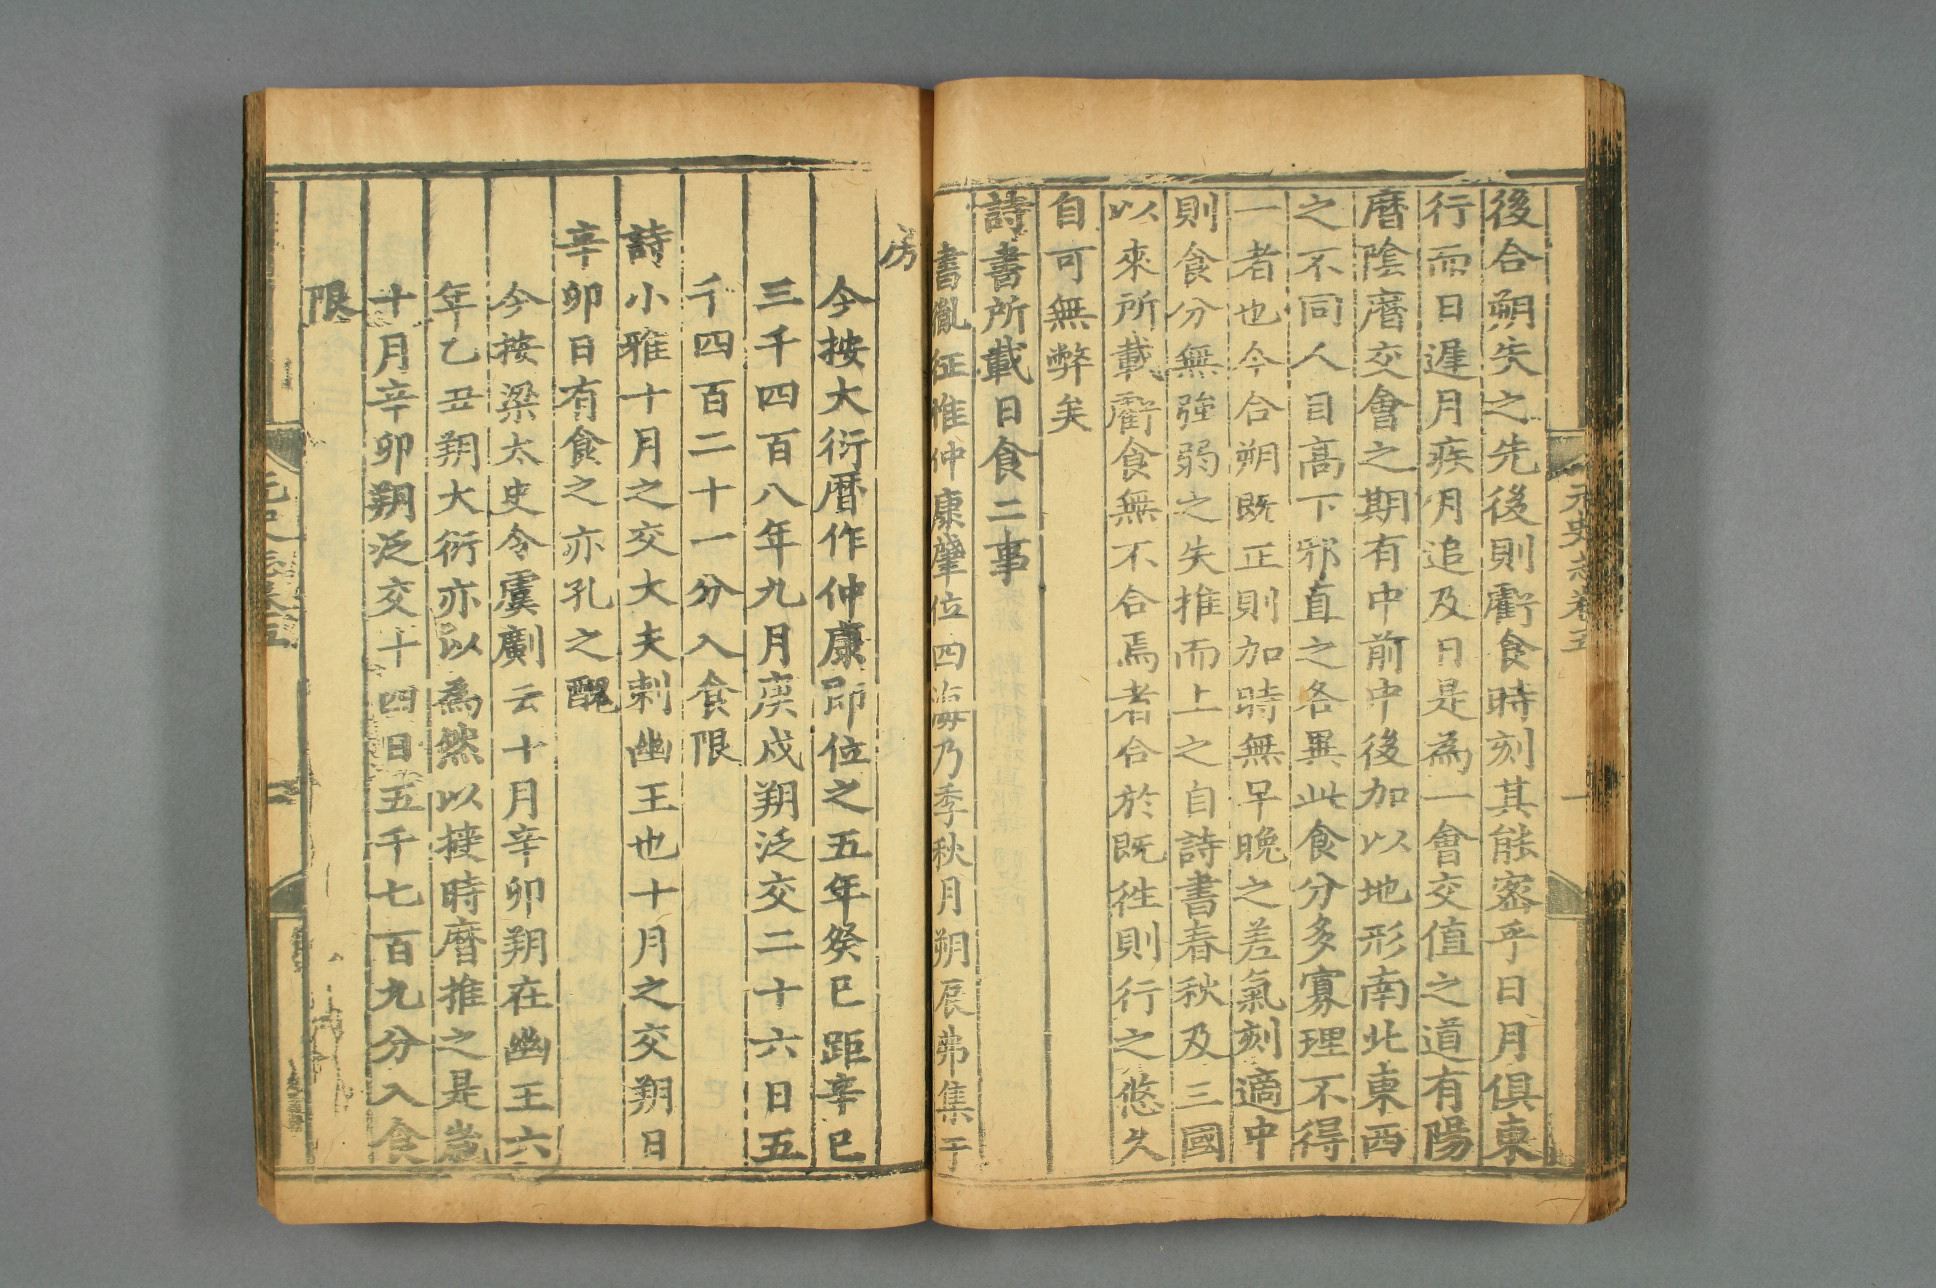 元史志卷五
一
後合朔失之先後則虧食時刻其能宻乎日月俱東
行而日遲月疾月追及日是為一會交值之道有陽
曆陰曆交會之期有中前中後加以地形南北東西
之不同人目高下邪直之各異此食分多寡理不得
一者也今合朔既正則加時無早晚之差氣刻適中
則食分無強弱之失推而上之自詩書春秋及三國
以來所載虧食無不合焉者合於既徃則行之悠久
自可無弊矣
詩書所載日食二事
書胤征惟仲康肇位四海乃季秋月朔辰弗集于
房
今按大衍曆作仲康即位之五年癸巳距辛巳
三千四百八年九月庚戌朔泛交二十六日五
千四百二十一分入食限
詩小雅十月之交大夫刺幽王也十月之交朔日
辛卯日有食之亦孔之醜
今按梁太史令虞𠠎云十月辛卯朔在幽王六
年乙丑朔大衍亦以為然以授時曆推之是嵗
十月辛卯朔泛交十四日五千七百九分入食
限
元史志卷五